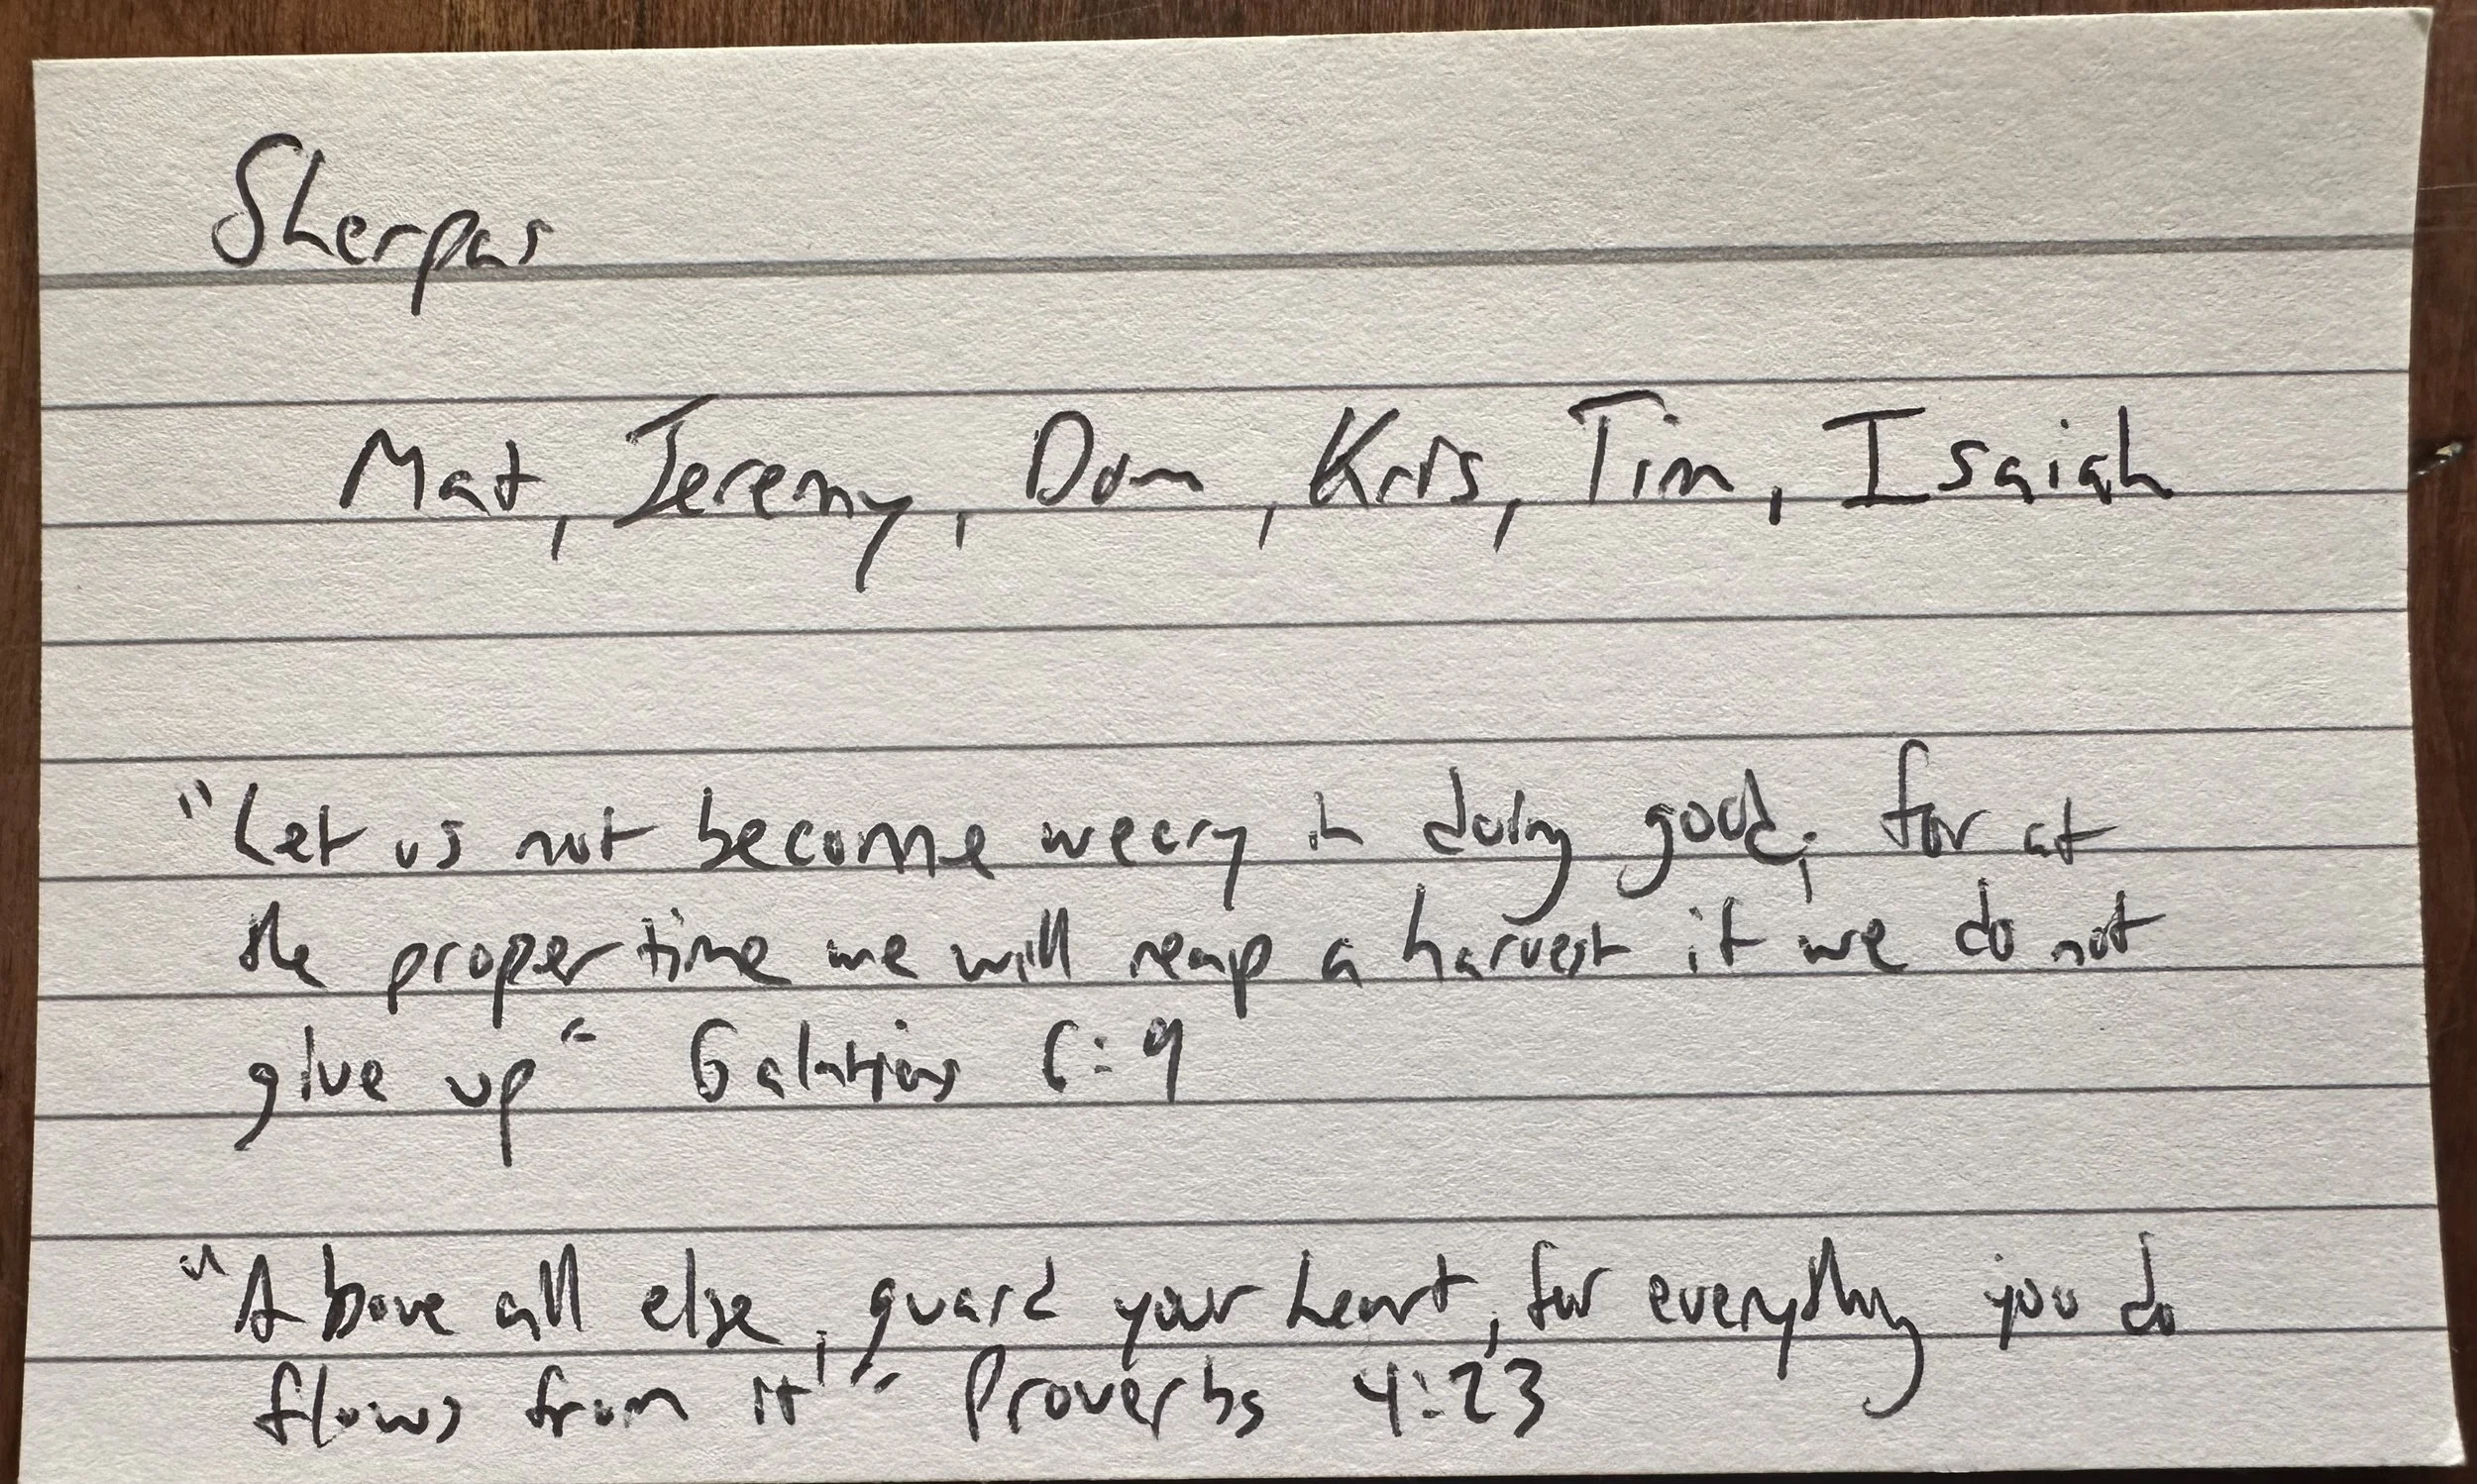 Sherpas
Mat, Jeremy, Dom, Kris, Tim, Isaiah
"Let us not become weary in doing good, for at
the proper time we will reap a harvest if we do not
give up" Galatians 6:9
"Above all else, guard your heart, for everything you do
flows from it" Proverbs 4:23